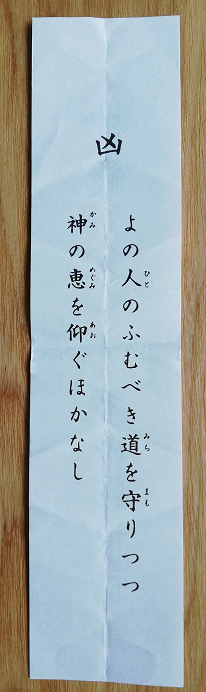 凶
よの人のふむべき道を守りつつ
神の恵を仰ぐほかなし